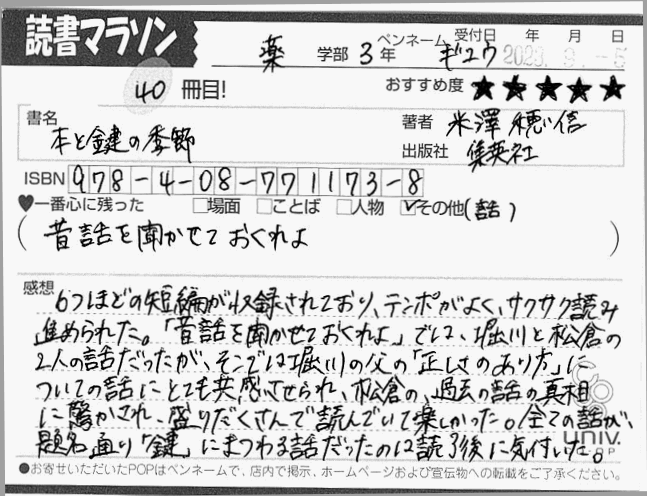 読書マラソン
薬 学部 3年 ペンネーム ギユウ 受付日 年 月 日
2023. 9. -5
40 冊目!
おすすめ度 ★★★★★
書名 本と鍵の季節
著者 米澤穂信
出版社 集英社
ISBN 978-4-08-771173-8
♥一番心に残った □場面 □ことば □人物 ☑その他(話)
(昔話を聞かせておくれよ)
感想
6つほどの短編が収録されており、テンポがよく、サクサク読み
進められた。「昔話を聞かせておくれよ」では、堀川と松倉の
2人の話だったが、そこでは堀川の父の「正しさのあり方」に
ついての話にとても共感させられ、松倉の、過去の話の真相
に驚かされ、盛りだくさんで読んでいて楽しかった。全ての話が、
題名通り「鍵」にまつわる話だったのは読了後に気付いた。
univ.
●お寄せいただいたPOPはペンネームで、店内で掲示、ホームページおよび宣伝物への転載をご了承ください。